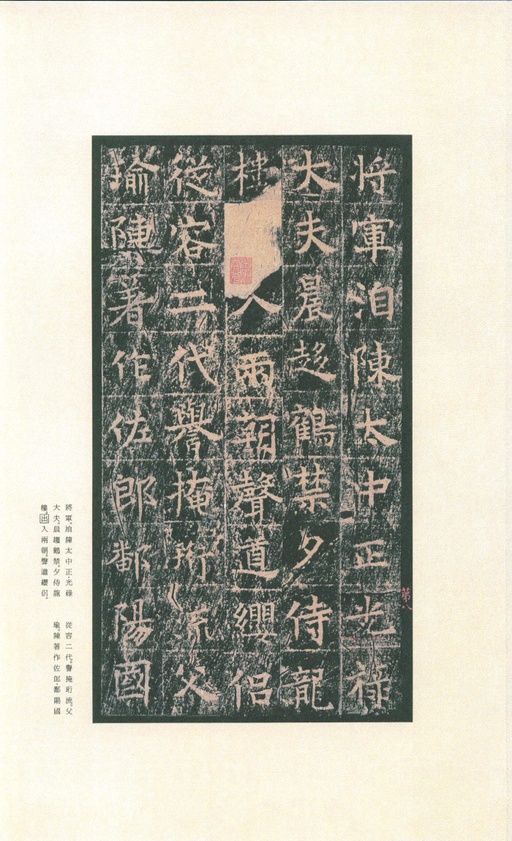 将軍洎陳太中正光祿
大夫晨趍鶴禁夕侍龍
樓入兩朝聲遒纓侶
從容二代譽掩珩流父
瑜陳著作佐郎鄱陽國
將軍洎陳太中正光祿
大夫晨趨鶴禁夕侍龍
樓出入兩朝聲遒纓侶
從容二代譽掩珩流父
瑜陳著作佐郎鄱陽國